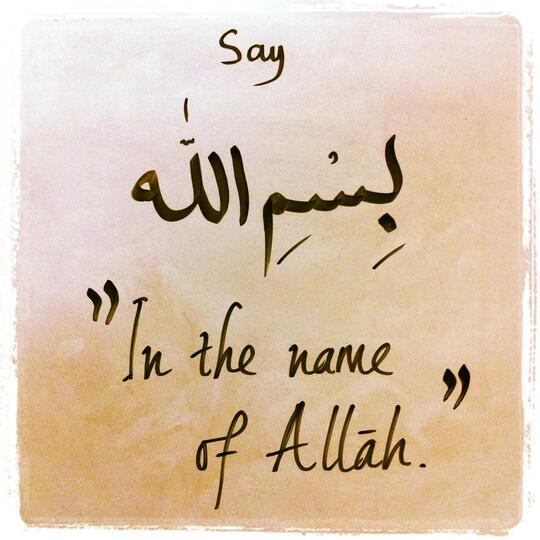 Say
بِسْمِ اللّٰه
”In the name
of Allāh.”